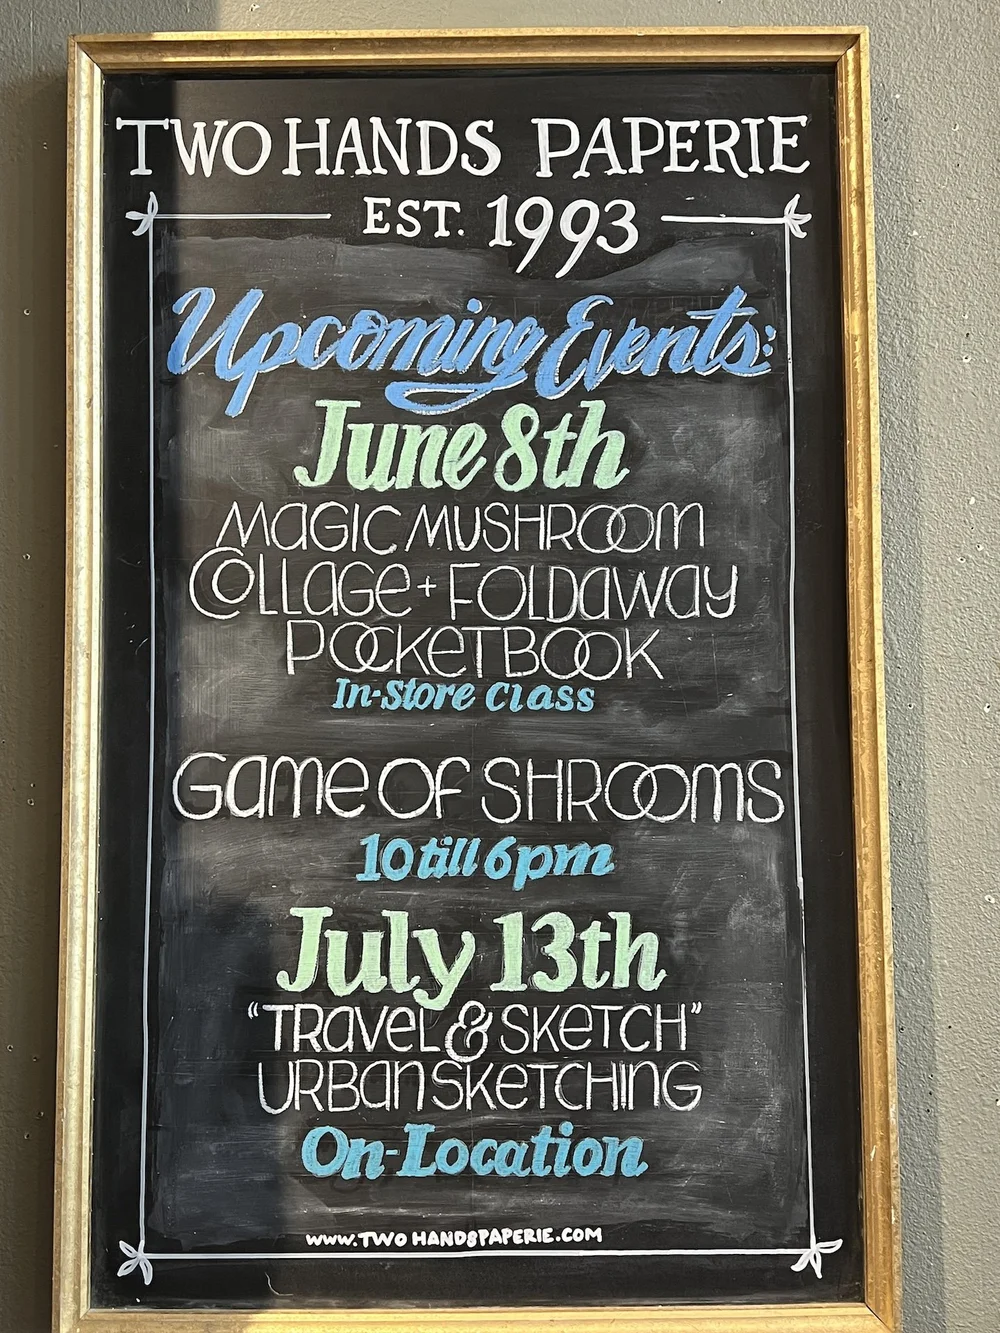 TWO HANDS PAPERIE
EST. 1993
Upcoming Events:
June 8th
MAGIC MUSHROOM
COLLAGE + FOLDAWAY
POCKETBOOK
In-Store Class
GAME OF SHROOMS
10 till 6pm
July 13th
"TRAVEL & SKETCH"
URBAN SKETCHING
On-Location
WWW.TWOHANDSPAPERIE.COM